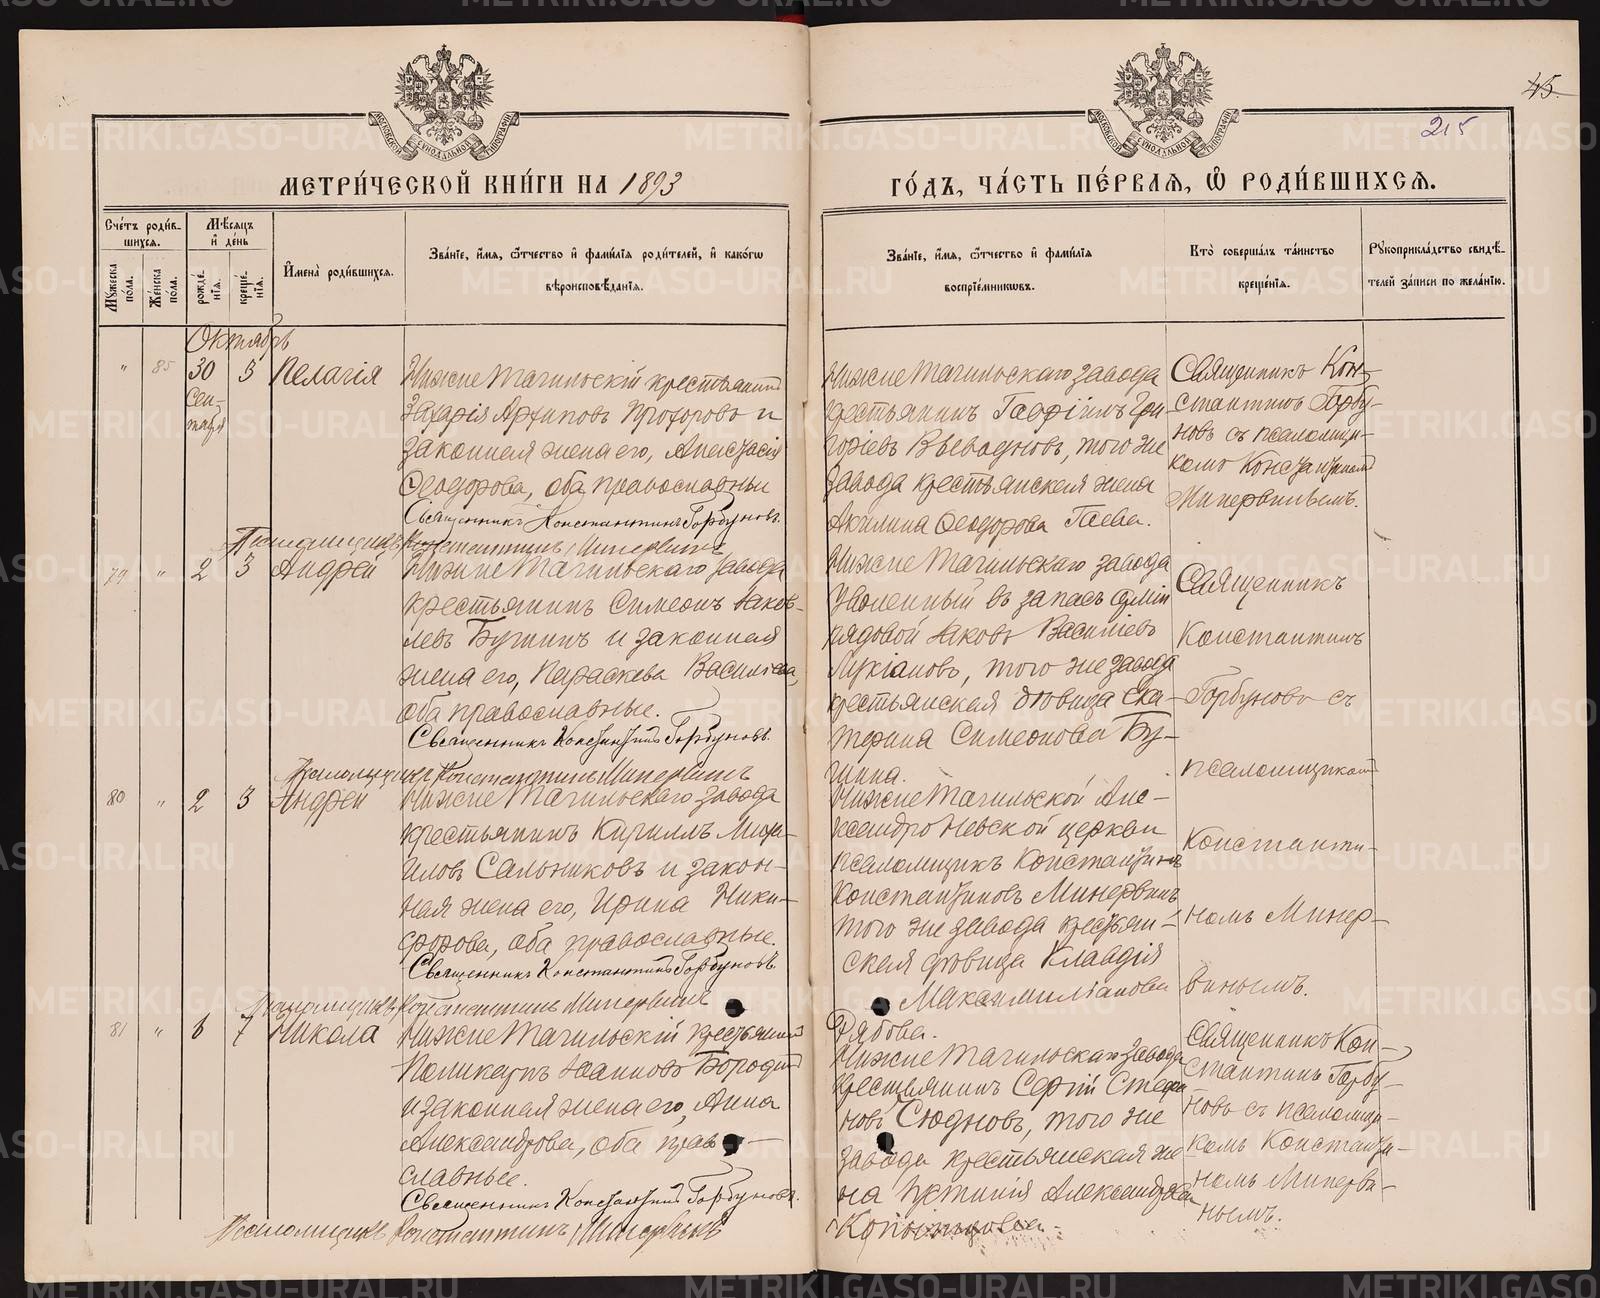 45
215
МЕТРИ́ЧЕСКОЙ КНИ́ГИ НА 1893
ГО́ДЪ, ЧА́СТЬ ПЕ́РВАѦ, Ѽ РОДИ́ВШИХСѦ.
Сче́тъ роди́в-
шихся.
Мѣ́сяцъ
и҆ де́нь
Мꙋ́жеска
пола.
Же́нска
пола.
рожде́-
нїѧ.
креще́-
нїѧ.
И҆мена̀ роди́вшихсѧ.
Зва́нїе, и҆́мѧ, ѻ҆́тчество и҆ фами́лїѧ роди́телей, и҆ како́гѡ
вѣроисповѣ́данїѧ.
Зва́нїе, и҆́мѧ, ѻ҆́тчество и҆ фами́лїѧ
воспрїе́мникѡвъ.
Кто̀ соверша́лъ та́инство
креще́нїѧ.
Рꙋкоприкла́дство свидѣ́-
телей за́писи по жела́нїю.
Октябрь
" 85 30 3 Пелагія
Сен-
тября
Нижне Тагильскій крестьянинъ
Захарія Архиповъ Прохоровъ и
законная жена его, Анастасія
Ѳеодорова, оба православные
Священникъ Константинъ Горбуновъ.
Псаломщикъ Константинъ Минервинъ
Нижне Тагильскаго завода
крестьянинъ Гри-
горіевъ того же
завода крестьянская жена
Акилина Ѳеодорова Гаева.
Священникъ Кон-
стантинъ Горбу-
новъ съ псаломщи-
комъ Константиномъ
Минервинымъ.
79 " 2 3 Андрей
Нижне Тагильскаго завода
крестьянинъ Симеонъ Іаков-
левъ и законная
жена его, Параскева Васильева,
оба православные.
Священникъ Константинъ Горбуновъ.
Псаломщикъ Константинъ Минервинъ
Нижне Тагильскаго завода
уволенный въ запасъ арміи
рядовой Іаковъ Васильевъ
Лукіановъ, того же завода
крестьянская дѣвица Ека-
терина Симеонова
Священникъ
Константинъ
Горбуновъ съ
псаломщикомъ
80 " 2 3 Андрей
Нижне Тагильскаго завода
крестьянинъ Кириллъ Миха-
иловъ Сальниковъ и закон-
ная жена его, Ирина Ники-
форова, оба православные.
Священникъ Константинъ Горбуновъ.
Псаломщикъ Константинъ Минервинъ
Нижне Тагильской Але-
ксандро Невской церкви
псаломщикъ Константинъ
Константиновъ Минервинъ
того же завода крестьян-
ская дѣвица Клавдія
Максимиліанова
Рябова.
Константи-
номъ Минер-
винымъ.
81 " 6 7 Никола
Нижне Тагильскій крестьянинъ
Поликарпъ Іоанновъ Бородинъ
и законная жена его, Анна
Александрова, оба право-
славные.
Священникъ Константинъ Горбуновъ.
Псаломщикъ Константинъ Минервинъ
Нижне Тагильскаго завода
крестьянинъ Сергій Стефа-
новъ того же
завода крестьянская же-
на Іустинія Александрова
Священникъ Кон-
стантинъ Горбу-
новъ съ псаломщи-
комъ Константи-
номъ Минерви-
нымъ.
METRIKI.GASO-URAL.RU